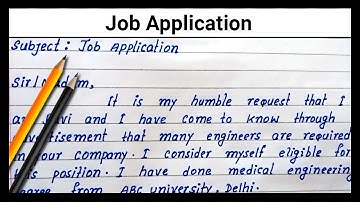 Job Application
Subject : Job Application
Sir/Madam,
It is my humble request that I
and I have come to know through
that many engineers are required
company. I consider myself eligible for
position. I have done medical engineering
from ABC university, Delhi.